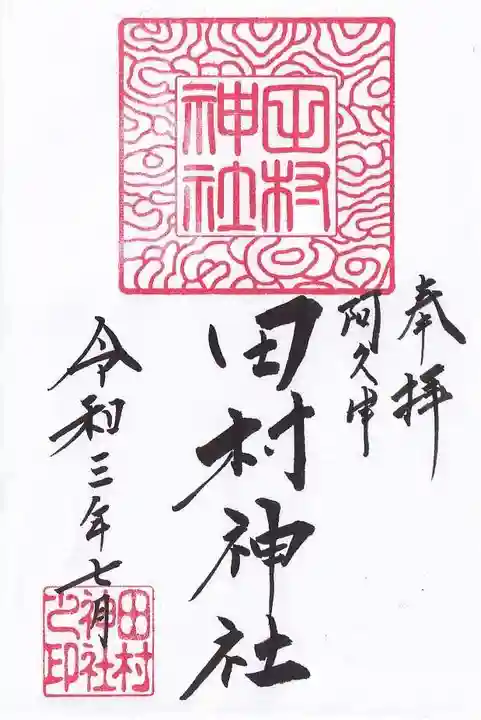 田村
神社
奉拝
阿久津
田村神社
令和三年七月
田村
神社
之印